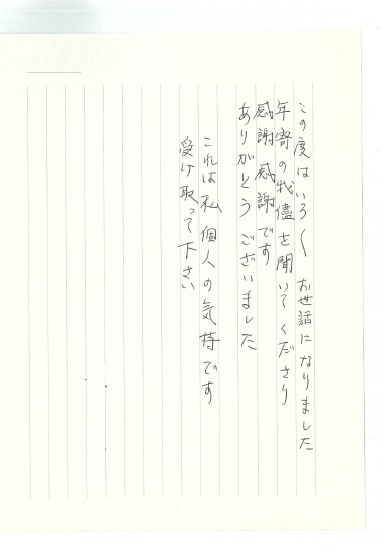 この度はいろ〳〵お世話になりました
年寄の我儘を聞いてくださり
感謝感謝です
ありがとうございました
これは私個人の気持です
受け取って下さい